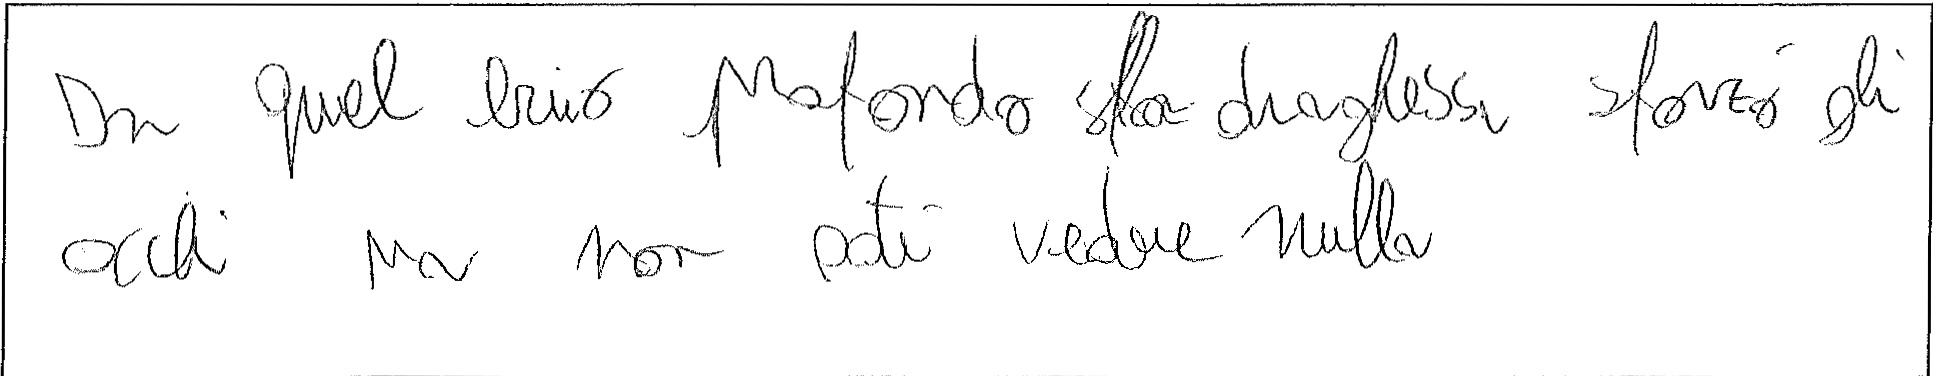 In quel buio profondo ella draghessa sforzó gli
occhi ma non potí vedere nulla